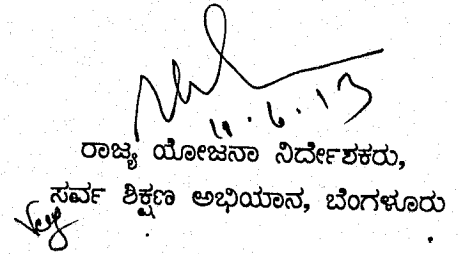 11.6.13
ರಾಜ್ಯ ಯೋಜನಾ ನಿರ್ದೇಶಕರು,
ಸರ್ವ ಶಿಕ್ಷಣ ಅಭಿಯಾನ, ಬೆಂಗಳೂರು